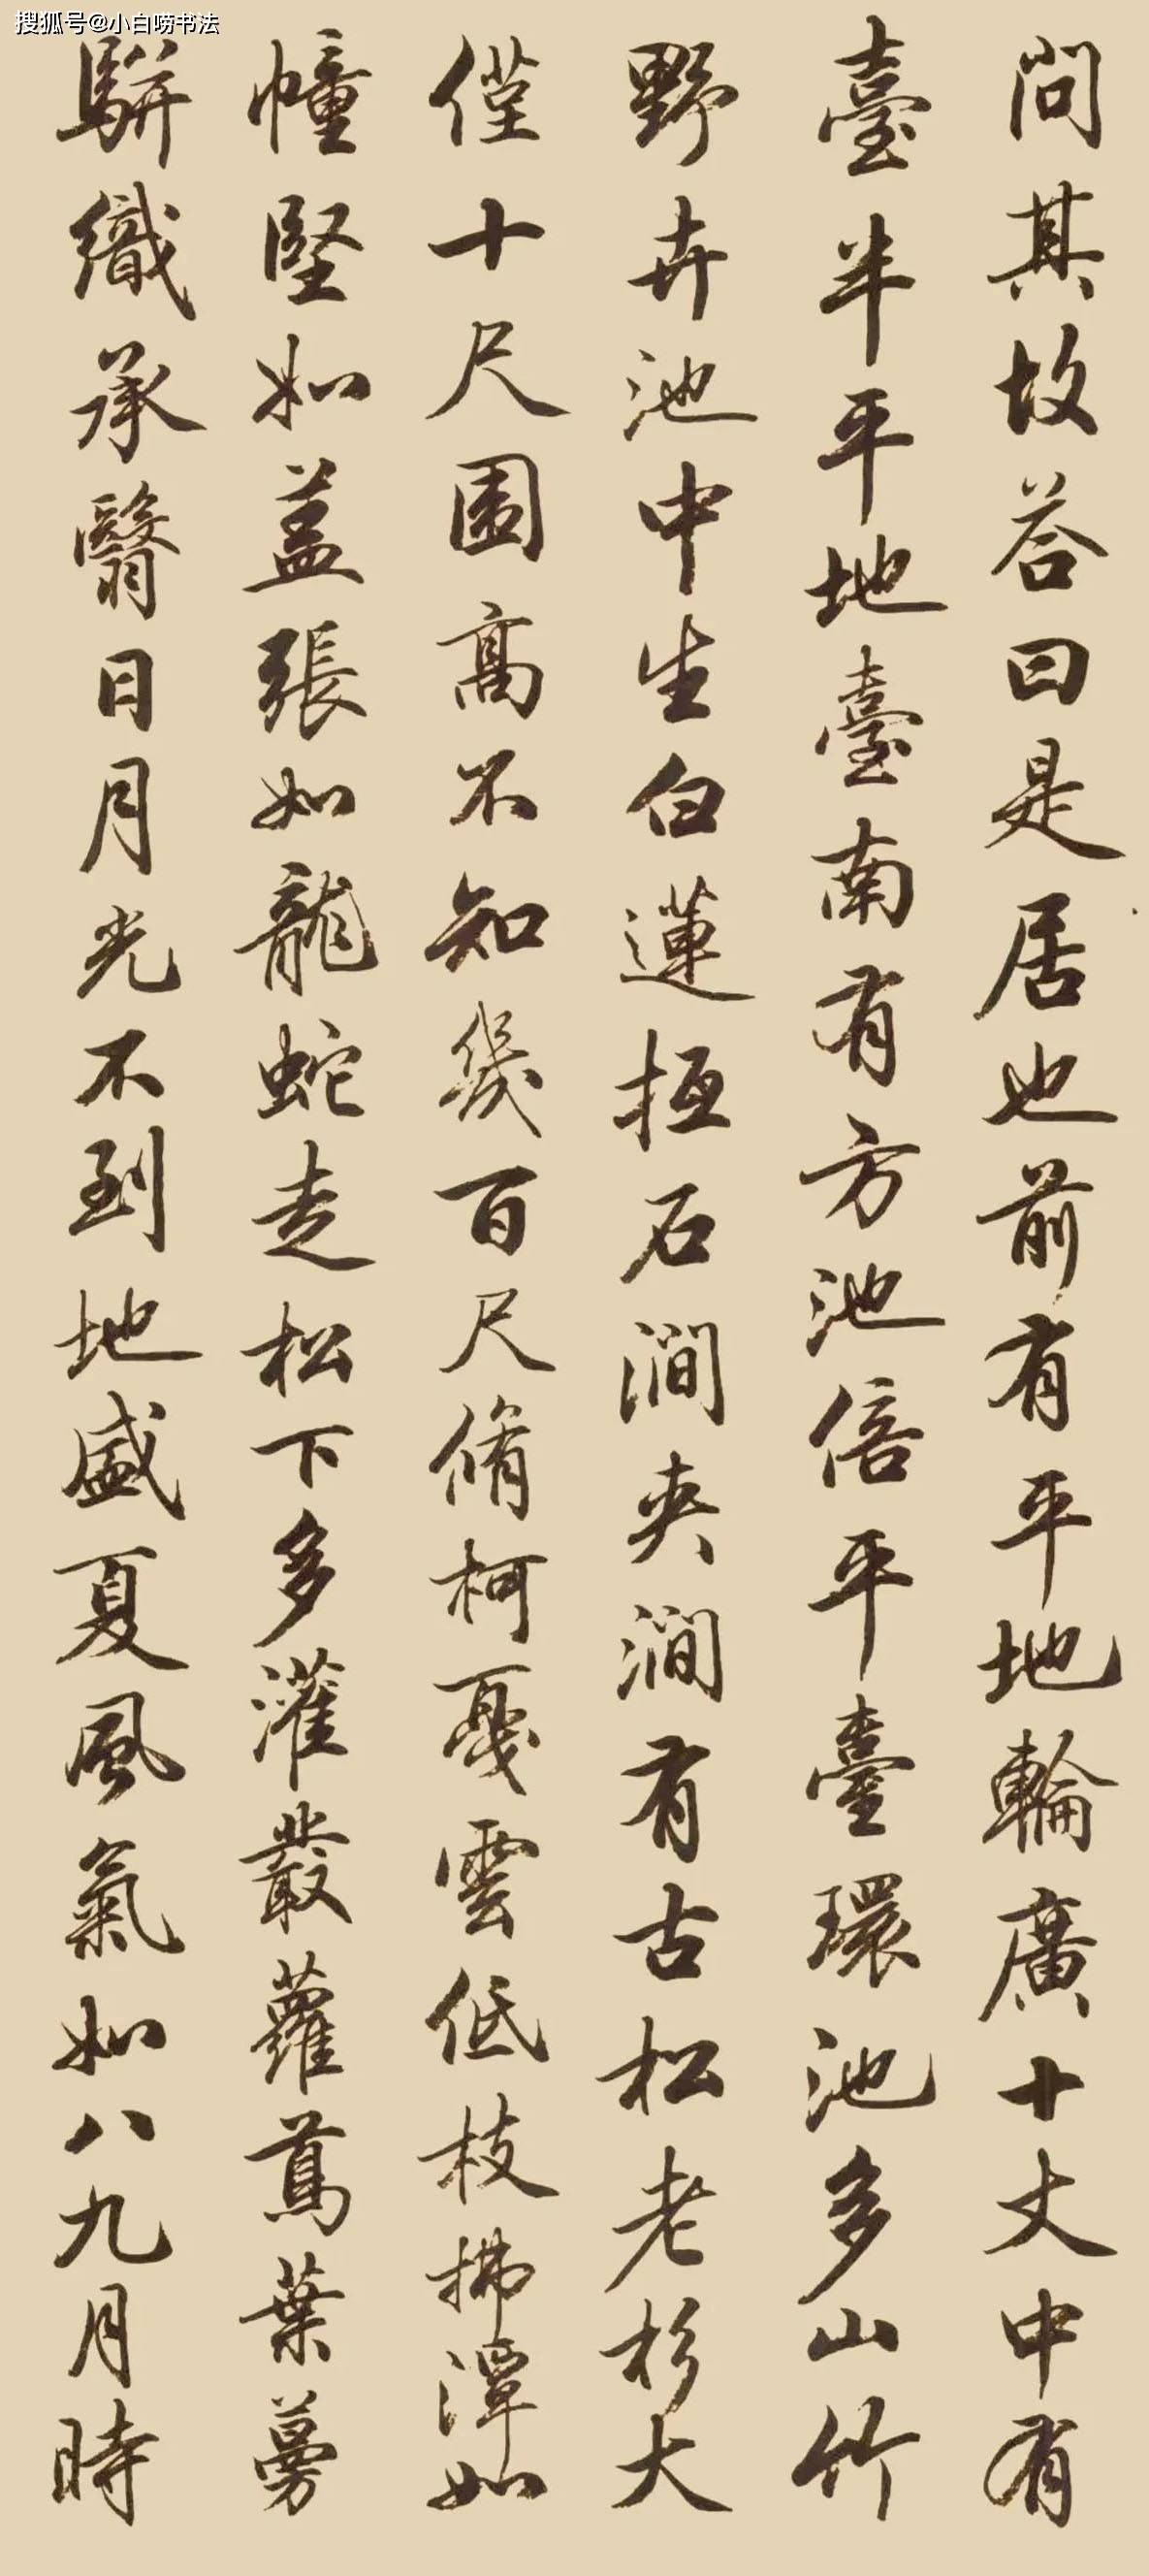 搜狐号@小白唠书法
问其故答曰是居也前有平地輪廣十丈中有
臺半平地臺南有方池倍平臺環池多山竹
野卉池中生白蓮拒石澗夾澗有古松老杉大
僅十尺圍高不知幾百尺脩柯戛雲低枝拂潭如
幢竪如蓋張如龍蛇走松下多灌叢蘿蔦葉蔓
駢織承翳日月光不到地盛夏風氣如八九月時